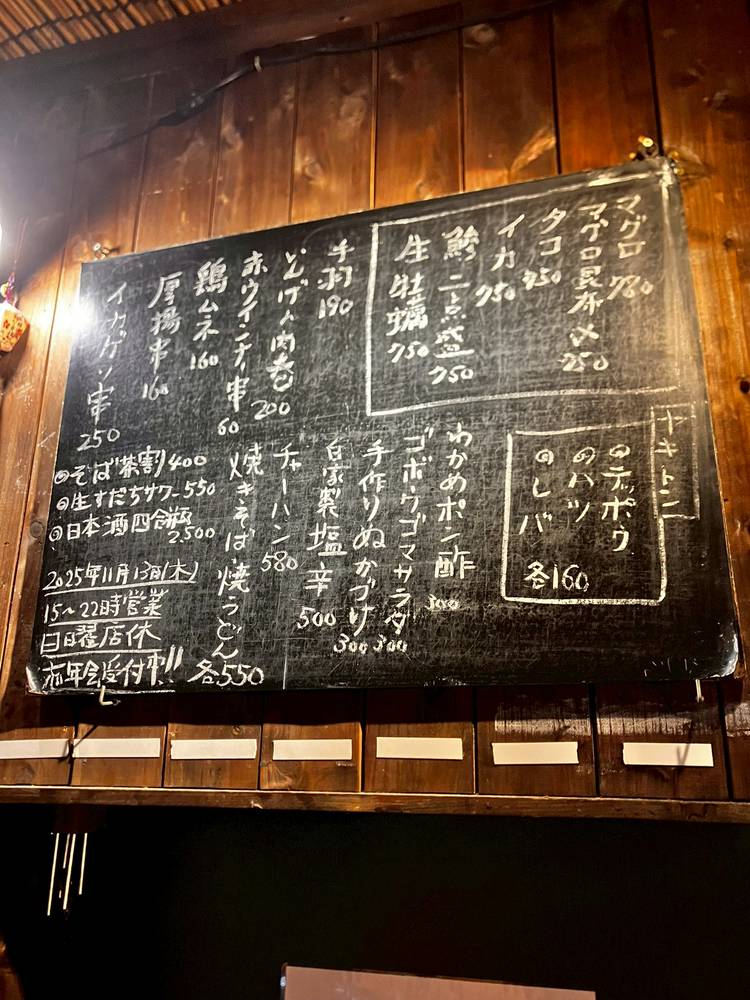 マグロ 780
マグロ昆布〆 250
タコ 950
イカ 750
鯵二点盛 750
生牡蠣 750
手羽 190
いんげん肉巻 200
赤ウインナー串 60
鶏ムネ 160
厚揚串 160
イカゲソ串 250
ヤキトン
◎テッポウ
◎ハツ
◎レバ
各160
わかめポン酢 300
ゴボウゴマサラダ 300
手作りぬかづけ 300
自家製塩辛 500
チャーハン 580
焼きそば・焼うどん 各550
◎そば茶割 400
◎生すだちサワー 550
◎日本酒四合瓶 2,500
2025年11月13日(木)
15~22時営業
日曜店休
忘年会受付中!!